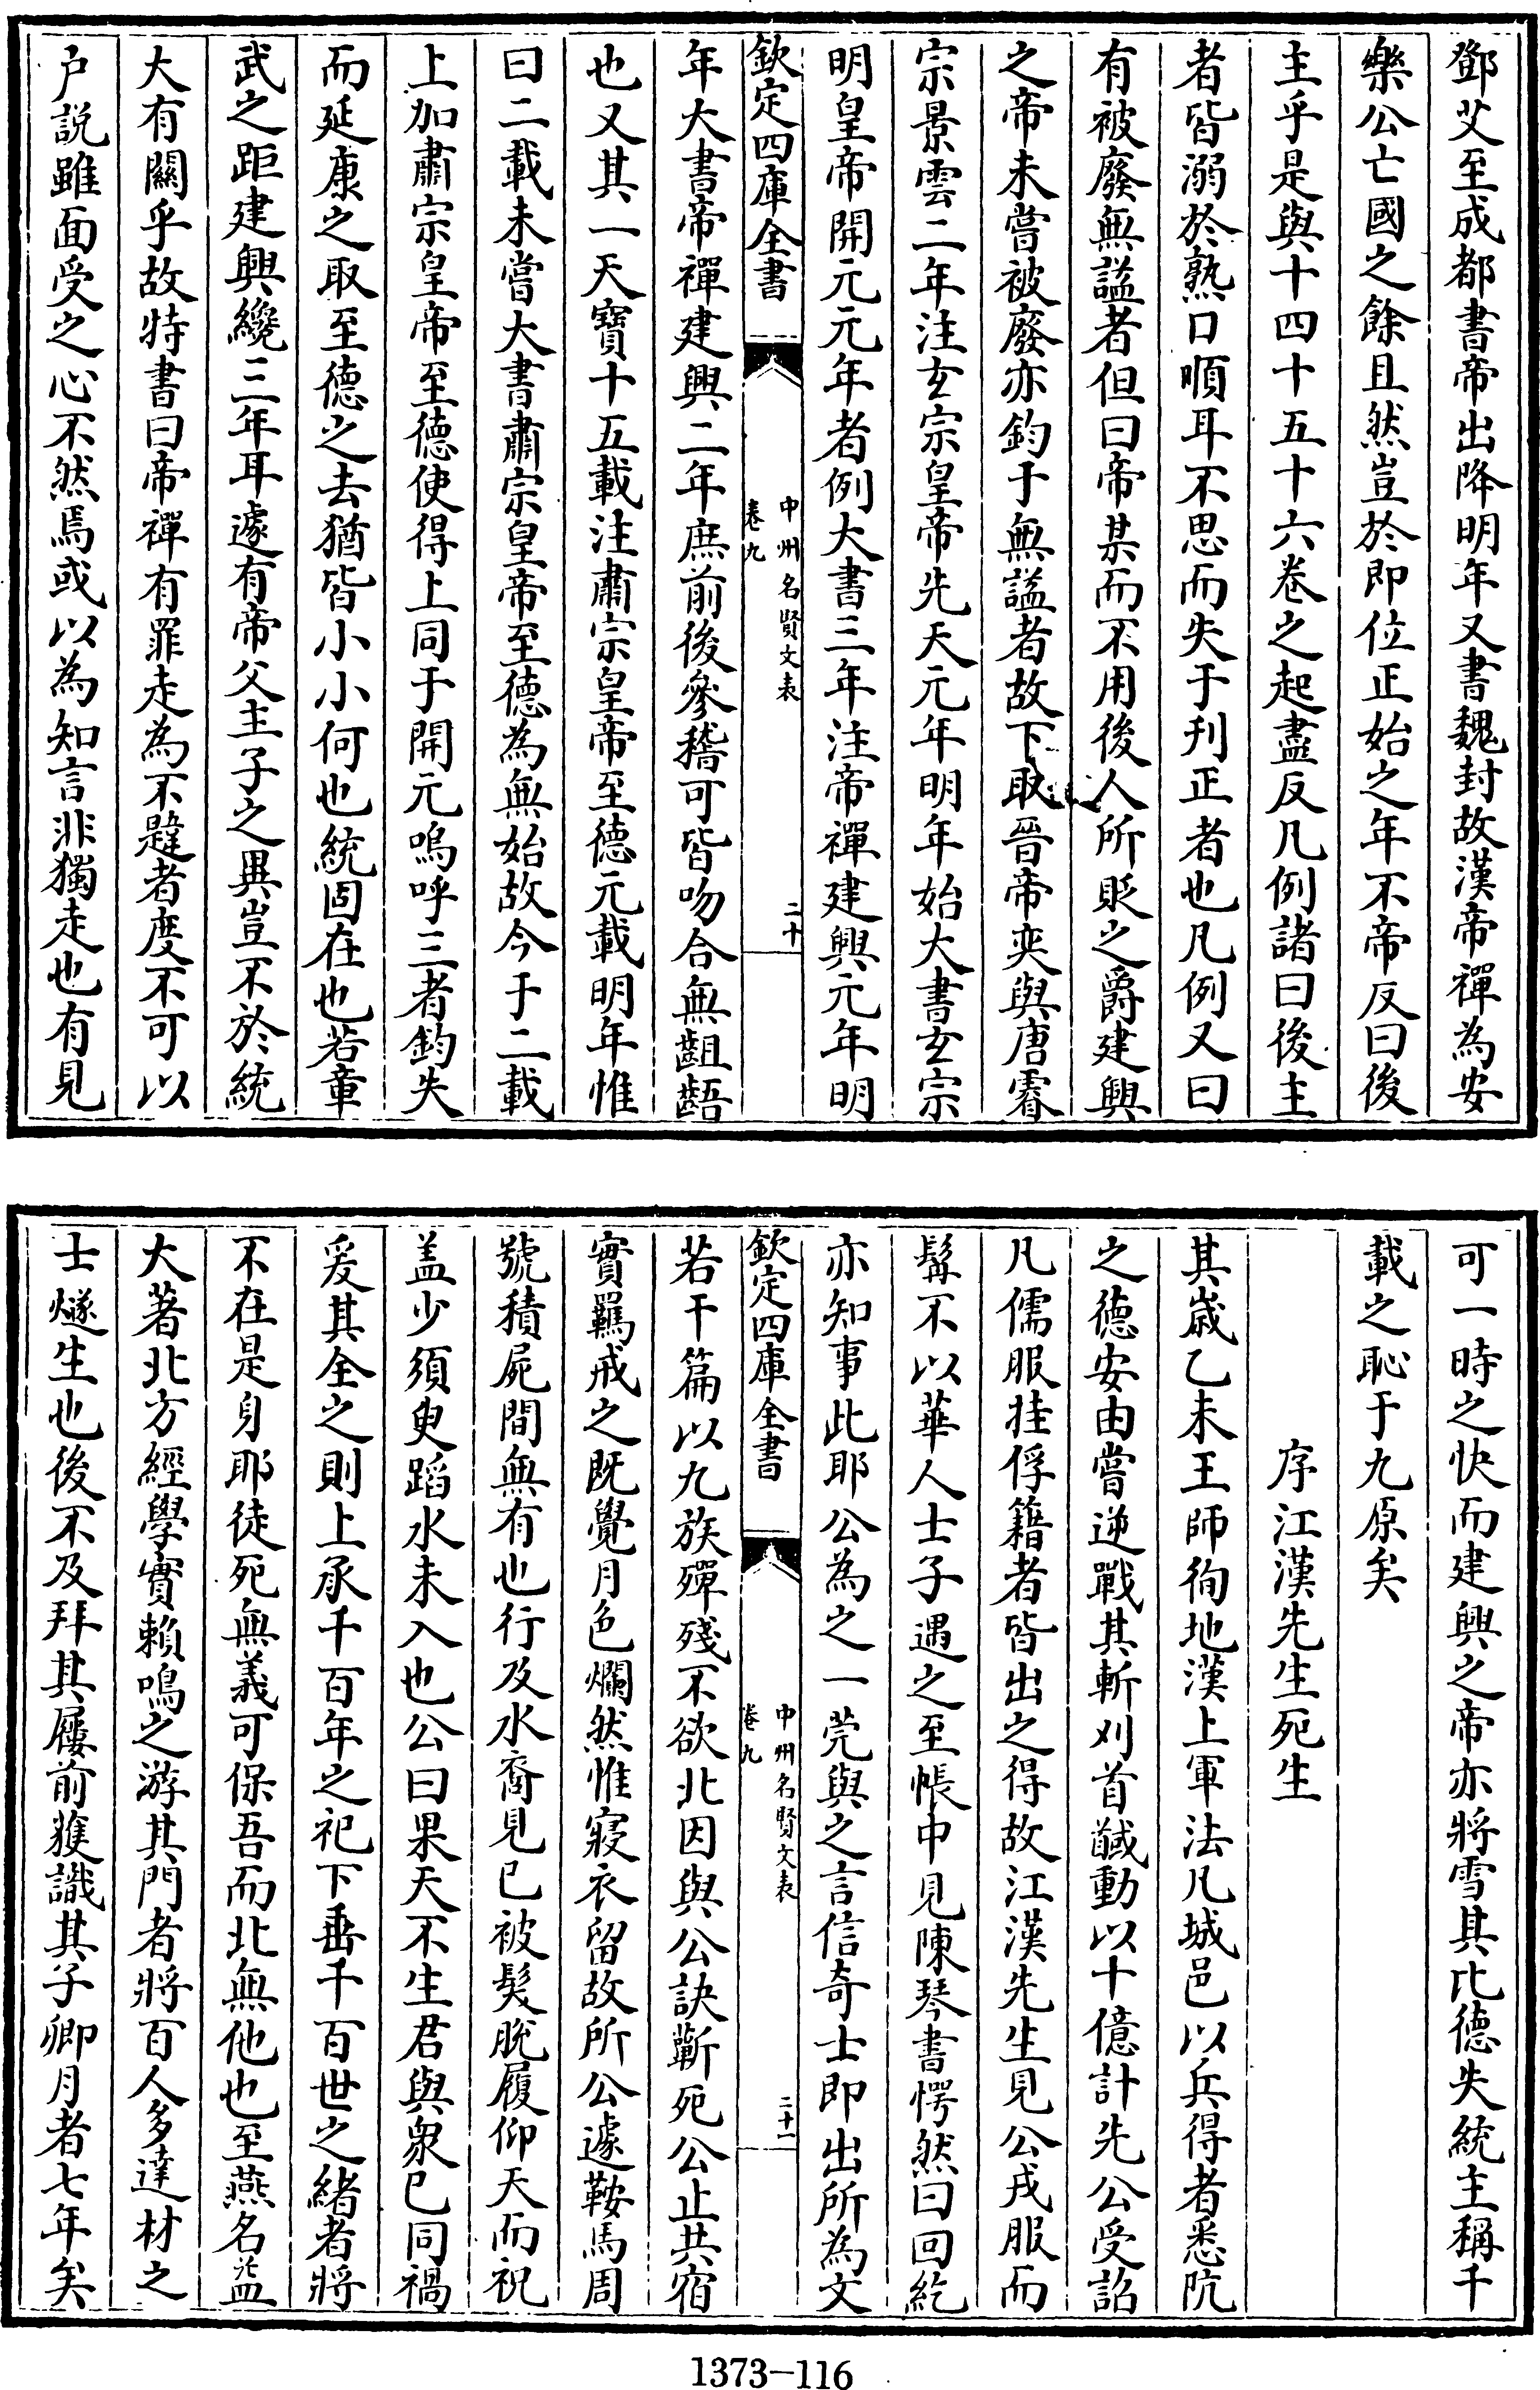 鄧艾至成都書帝出降明年又書魏封故漢帝禪為安
樂公亡國之餘且然豈於即位正始之年不帝反曰後
主乎是與十四十五十六卷之起盡反凡例諸曰後主
者皆溺於熟口順耳不思而失于刋正者也凡例又曰
有被廢無諡者但曰帝某而不用後人所貶之爵建興
之帝未嘗被廢亦鈞于無諡者故下取晉帝奕與唐睿
宗景雲二年注玄宗皇帝先天元年明年始大書玄宗
明皇帝開元元年者例大書三年注帝禪建興元年明
欽定四庫全書
中州名賢文表
卷九
二十
年大書帝禪建興二年庶前後參稽可皆吻合無齟齬
也又其一天寶十五載注肅宗皇帝至德元載明年惟
曰二載未嘗大書肅宗皇帝至德為無始故今于二載
上加肅宗皇帝至德使得上同于開元嗚呼三者鈞失
而延康之取至德之去猶皆小小何也統固在也若章
武之距建興纔三年耳遽有帝父主子之異豈不於統
大有關乎故特書曰帝禪有罪走為不韙者度不可以
户說雖面受之心不然焉或以為知言非獨走也有見
可一時之快而建興之帝亦將雪其比德失統主稱千
載之恥于九原矣
序江漢先生死生
其歲乙未王師徇地漢上軍法凡城邑以兵得者悉阬
之德安由嘗逆戰其斬刈首馘動以十億計先公受詔
凡儒服挂俘籍者皆出之得故江漢先生見公戎服而
髯不以華人士子遇之至帳中見陳琴書愕然曰回紇
亦知事此耶公為之一莞與之言信奇士即出所為文
欽定四庫全書
中州名賢文表
卷九
二十一
若干篇以九族殫殘不欲北因與公訣蘄死公止共宿
實羈戒之既覺月色爛然惟寢衣留故所公遽鞍馬周
號積屍間無有也行及水裔見已被髮脫履仰天而祝
盖少須臾蹈水未入也公曰果天不生君與衆已同禍
爰其全之則上承千百年之祀下垂千百世之緒者將
不在是身耶徒死無義可保吾而北無他也至燕名益
大著北方經學實賴鳴之游其門者將百人多達材之
士燧生也後不及拜其屨前獲識其子卿月者七年矣
1373-116